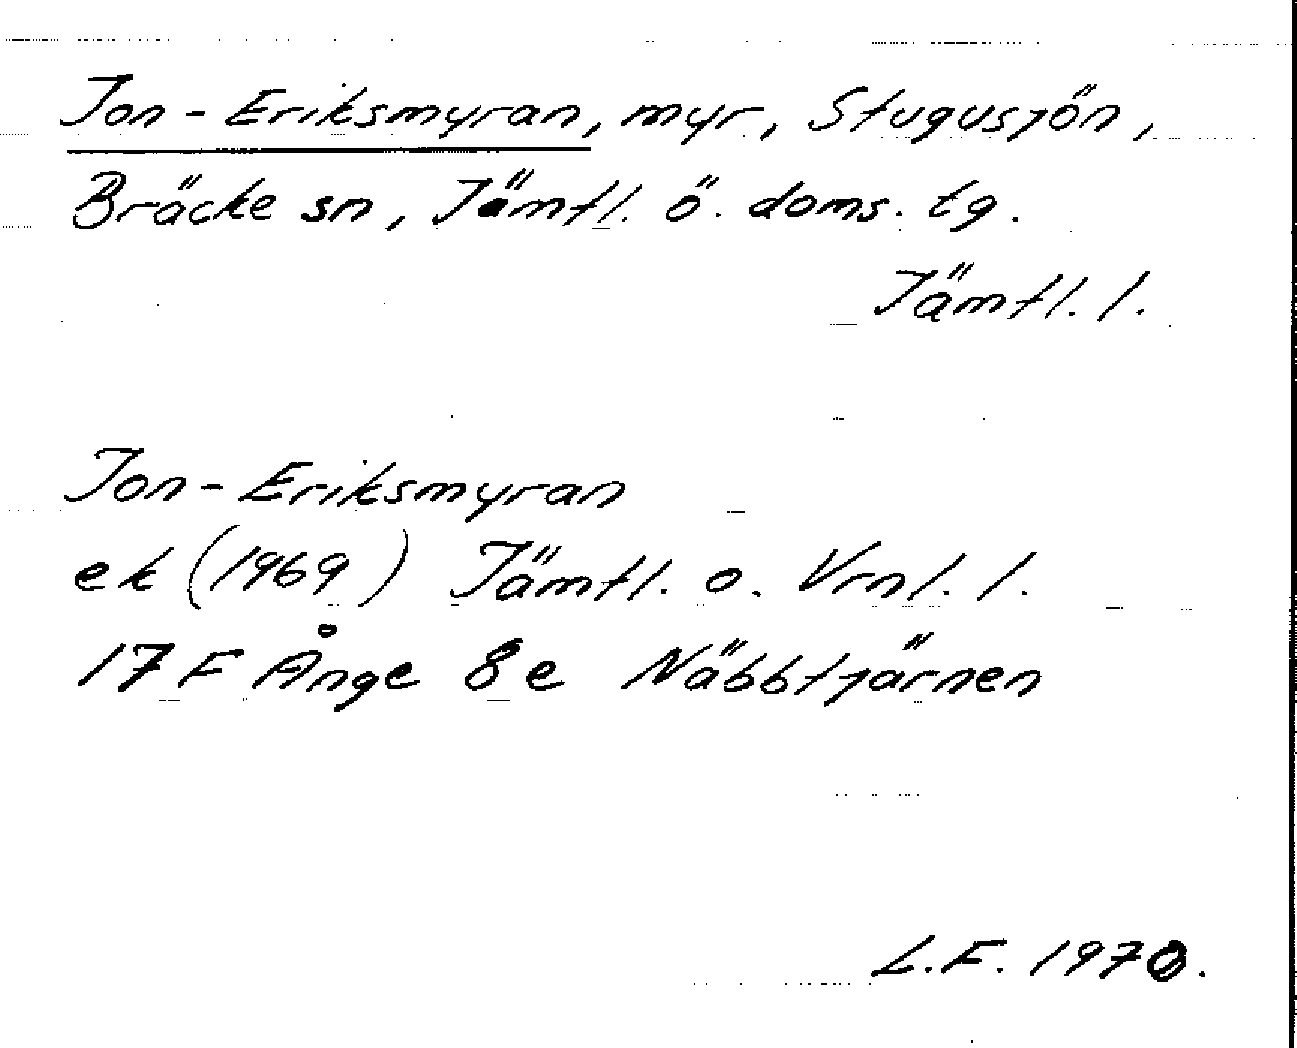 Jon-Eriksmyran, myr, Stugusjön,
Bräcke sn, Jämtl. ö. doms. tg.
Jämtl. l.
Jon-Eriksmyran
ek (1969) Jämtl. o. Vrnl. l.
17 F Ånge 8 e Näbbtjärnen
L.F. 1970.